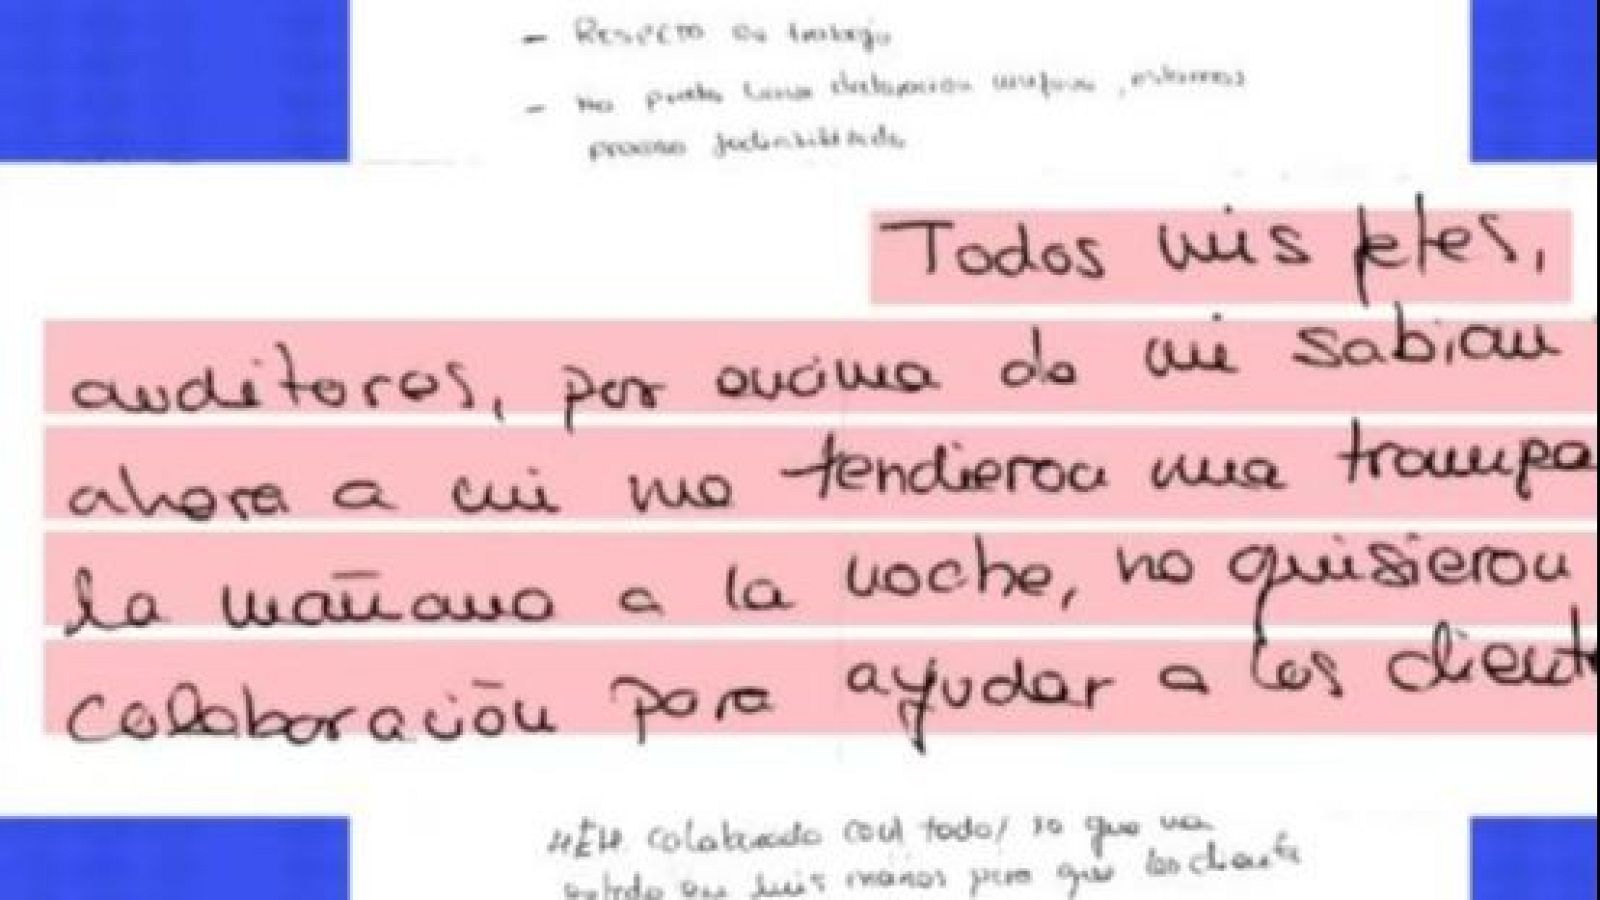 - RESPETO su trabajo
- No puedo hacer declaración, estamos
proceso judicializado
Todos mis jefes,
auditores, por encima de mi sabian
ahora a mi me tendieron una trampa
la mañana a la noche, no quisieron
colaboración para ayudar a los client
HEM colaborado con todo/ lo que ha
estado en mis manos para que los client